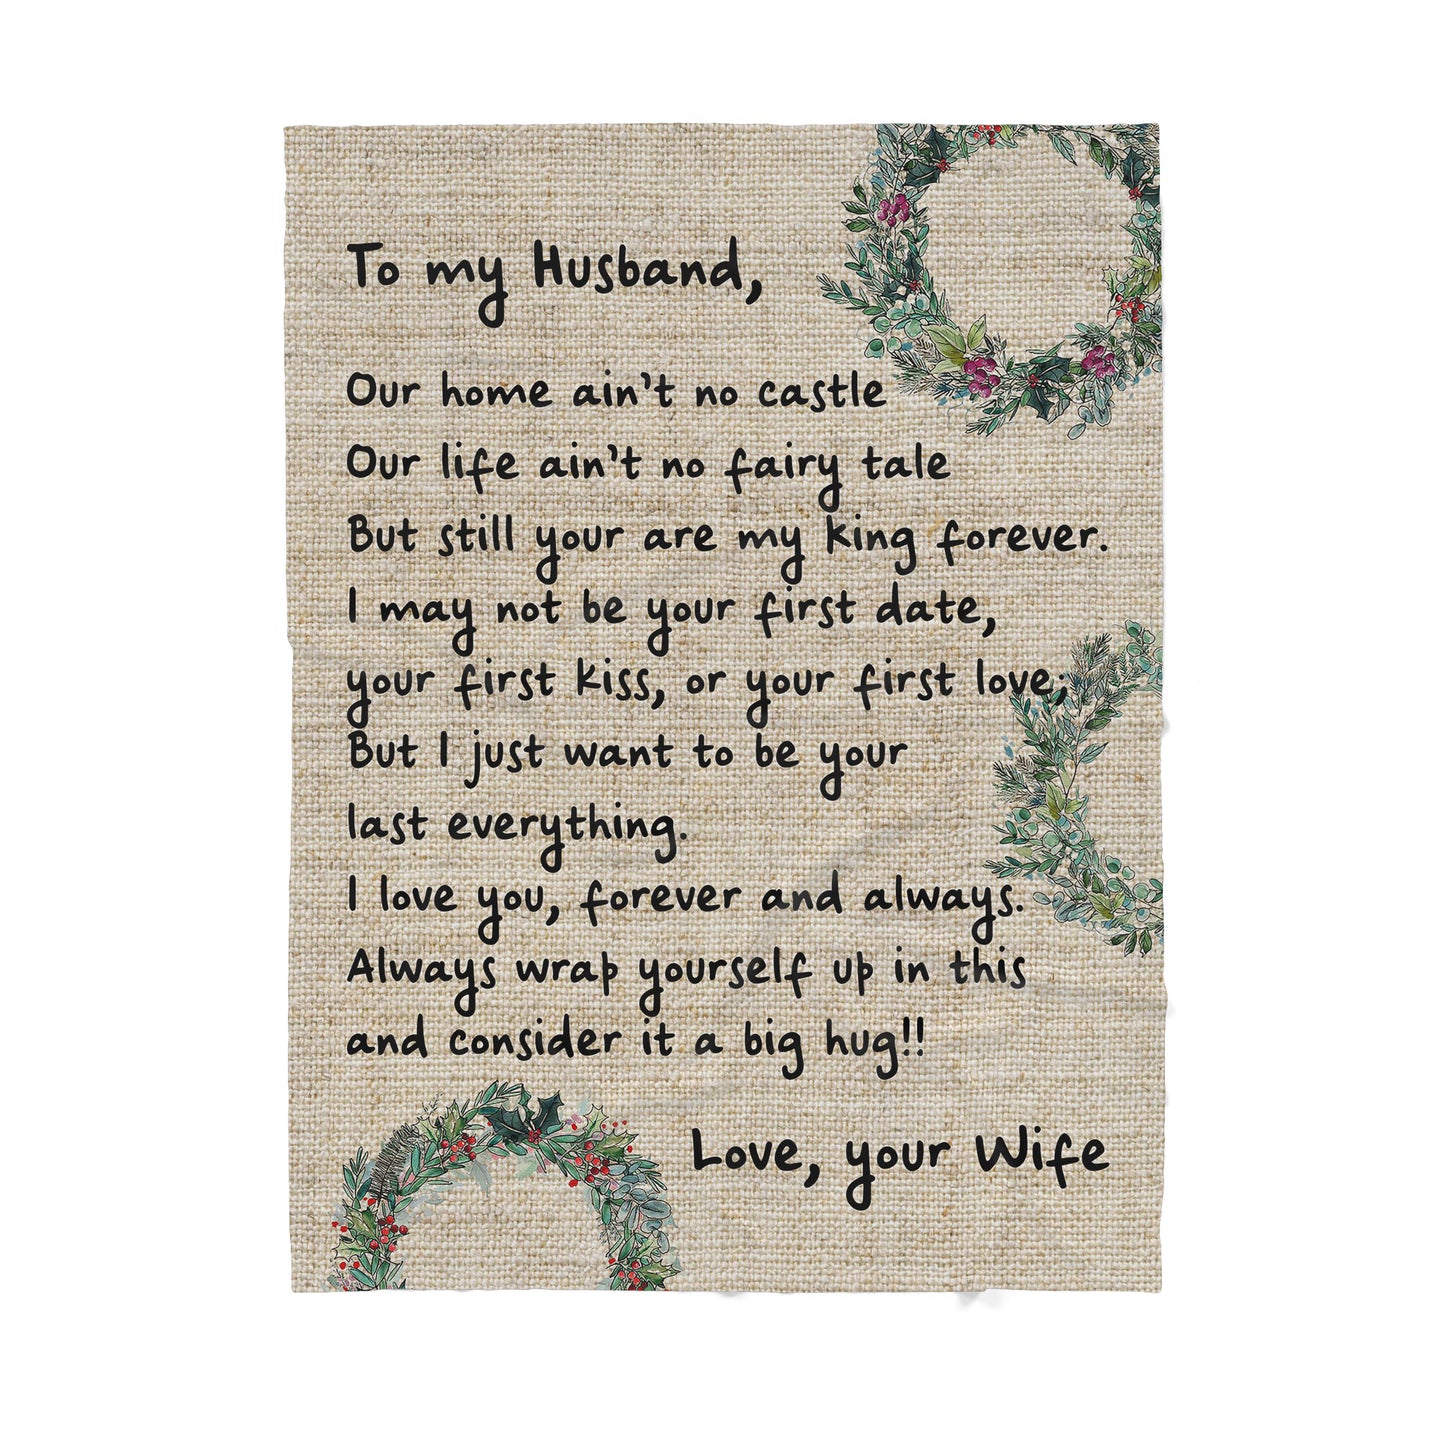 To my Husband,
Our home ain't no castle
Our life ain't no fairy tale
But still your are my king forever.
I may not be your first date,
your first kiss, or your first love,
But I just want to be your
last everything.
I love you, forever and always.
Always wrap yourself up in this
and consider it a big hug!!
Love, your Wife